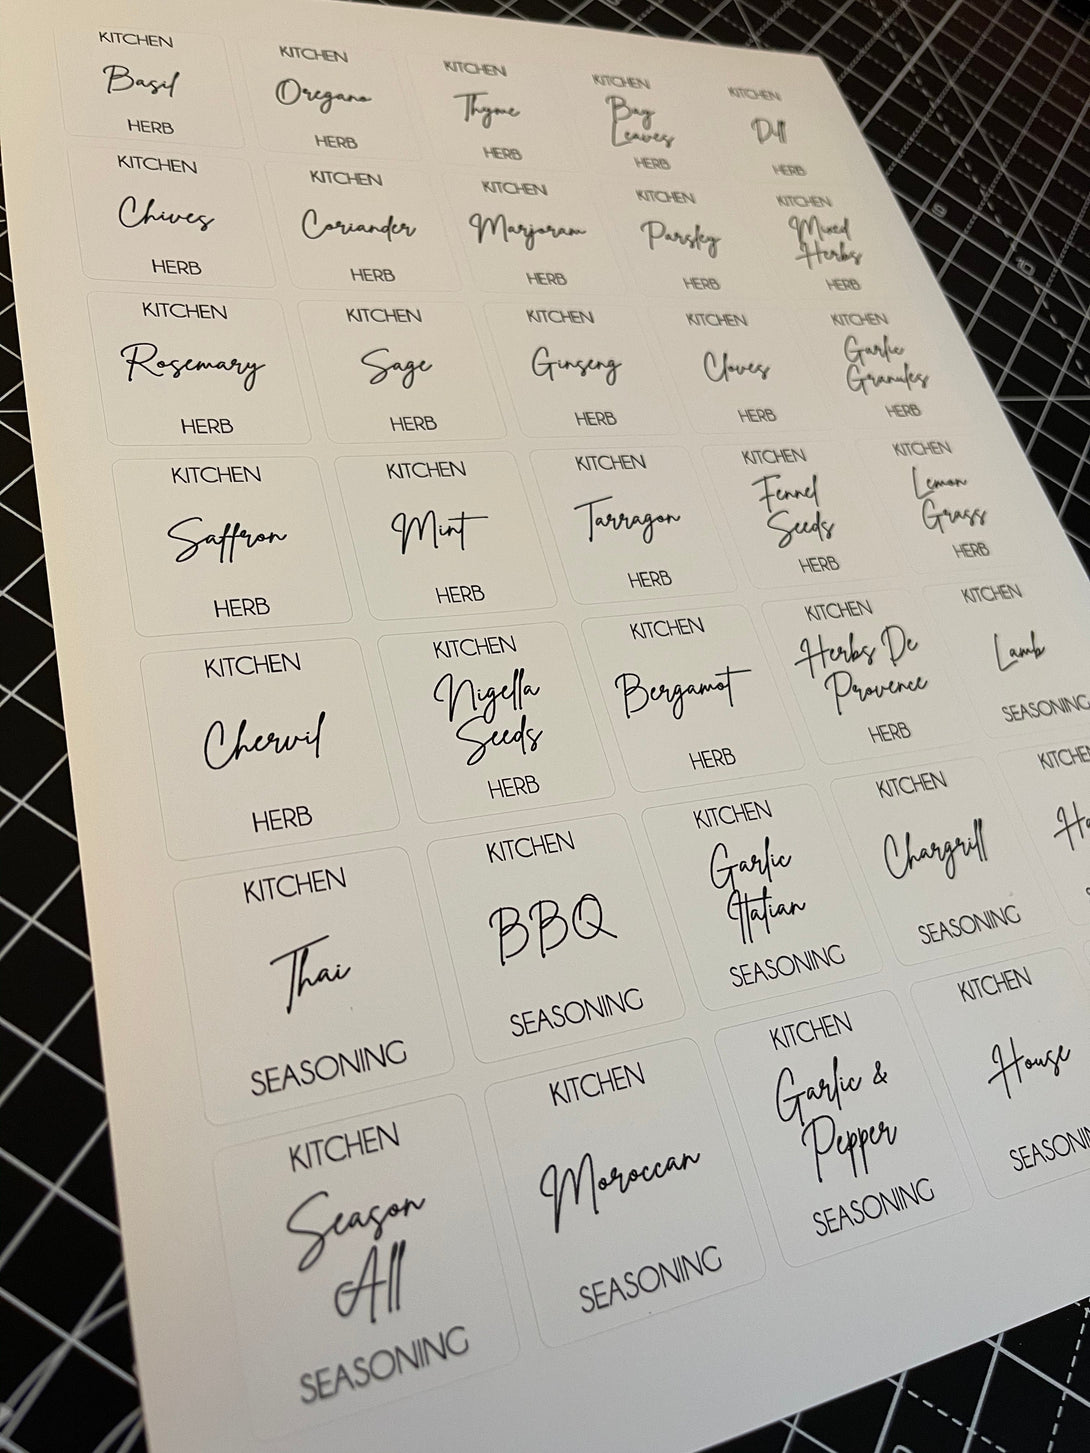 KITCHEN
Basil
HERB
KITCHEN
Oregano
HERB
KITCHEN
Thyme
HERB
KITCHEN
Bay
Leaves
HERB
KITCHEN
Dill
HERB
KITCHEN
Chives
HERB
KITCHEN
Coriander
HERB
KITCHEN
Marjoram
HERB
KITCHEN
Parsley
HERB
KITCHEN
Mixed
Herbs
HERB
KITCHEN
Rosemary
HERB
KITCHEN
Sage
HERB
KITCHEN
Ginseng
HERB
KITCHEN
Cloves
HERB
KITCHEN
Garlic
Granules
HERB
KITCHEN
Saffron
HERB
KITCHEN
Mint
HERB
KITCHEN
Tarragon
HERB
KITCHEN
Fennel
Seeds
HERB
KITCHEN
Lemon
Grass
HERB
KITCHEN
Chervil
HERB
KITCHEN
Nigella
Seeds
HERB
KITCHEN
Bergamot
HERB
KITCHEN
Herbs De
Provence
HERB
KITCHEN
Lamb
SEASONING
KITCHEN
Thai
SEASONING
KITCHEN
BBQ
SEASONING
KITCHEN
Garlic
Italian
SEASONING
KITCHEN
Chargrill
SEASONING
KITCHE
KITCHEN
Season
All
SEASONING
KITCHEN
Moroccan
SEASONING
KITCHEN
Garlic &
Pepper
SEASONING
KITCHEN
House
SEASONIN
9
10